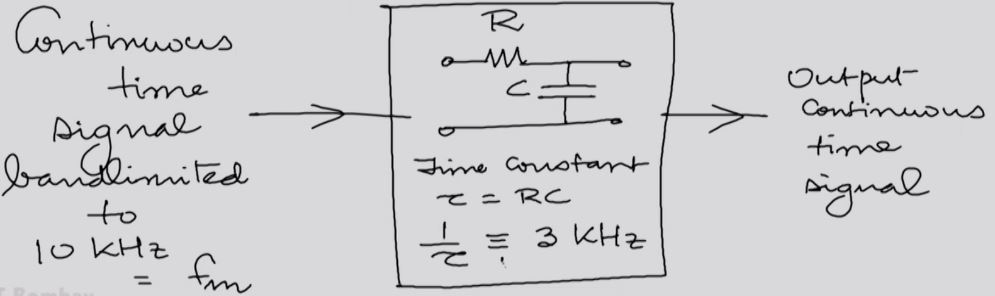 Continuous
time
signal
bandlimited
to
10 KHz
= fm
R
C
Time constant
τ = RC
1/τ ≡ 3 KHz
Output
continuous
time
signal